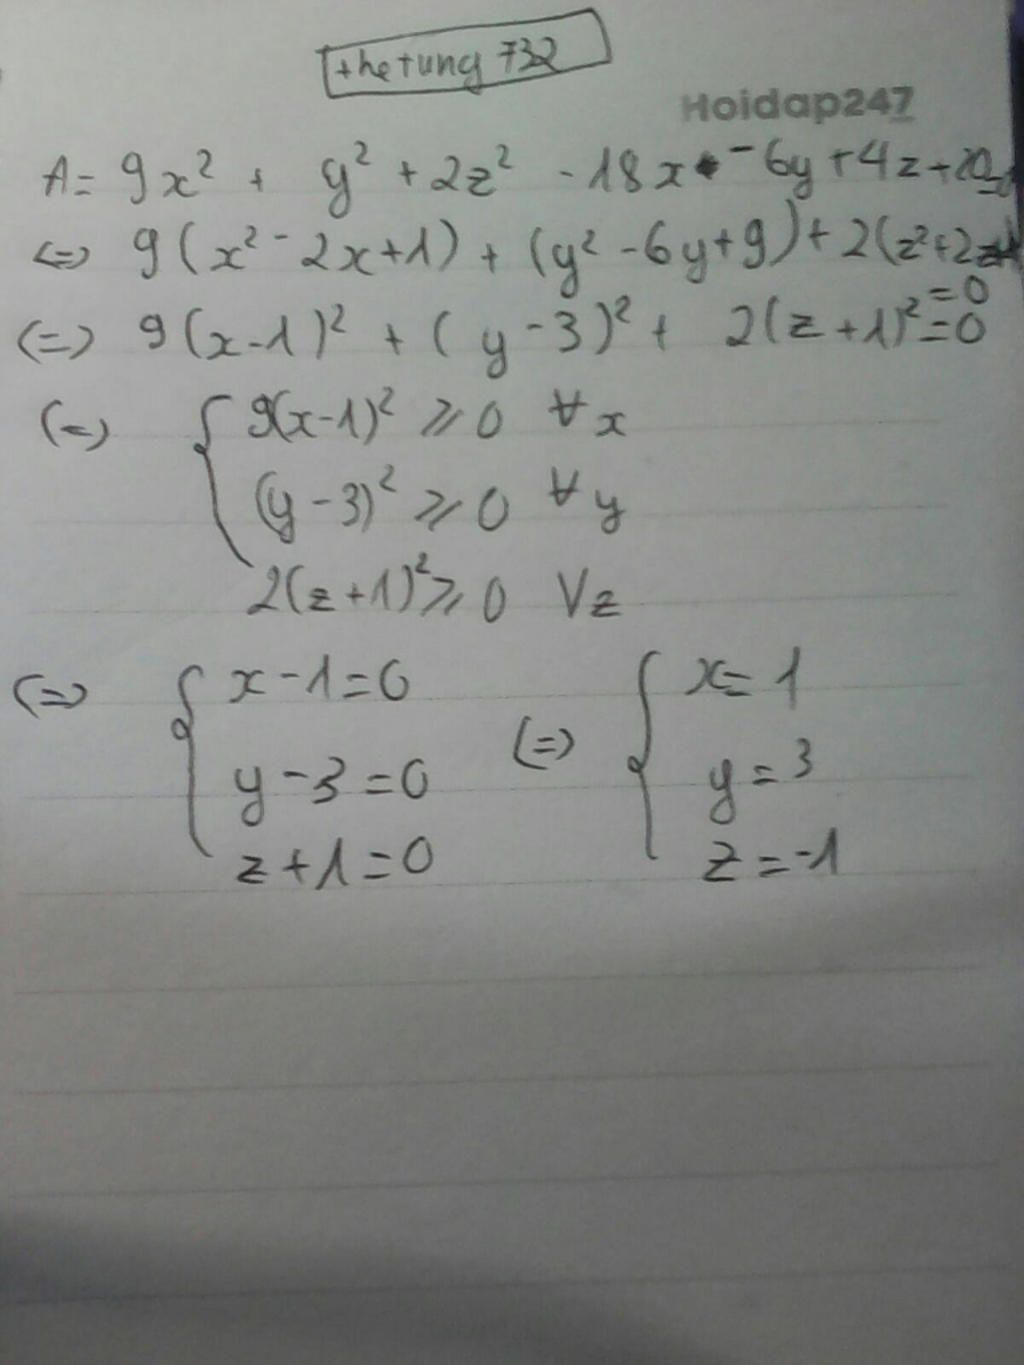 thetung 732
Hoidap247
A = 9x² + y² + 2z² - 18x - 6y + 4z + 20 =
<=> 9(x² - 2x + 1) + (y² - 6y + 9) + 2(z² + 2z
= 0
(=) 9(x - 1)² + (y - 3)² + 2(z + 1)² = 0
(=) { 9(x - 1)² ⩾ 0 ∀ x
(y - 3)² ⩾ 0 ∀ y
2(z + 1)² ⩾ 0 ∀ z
(=) { x - 1 = 0
y - 3 = 0
z + 1 = 0
(=) { x = 1
y = 3
z = -1